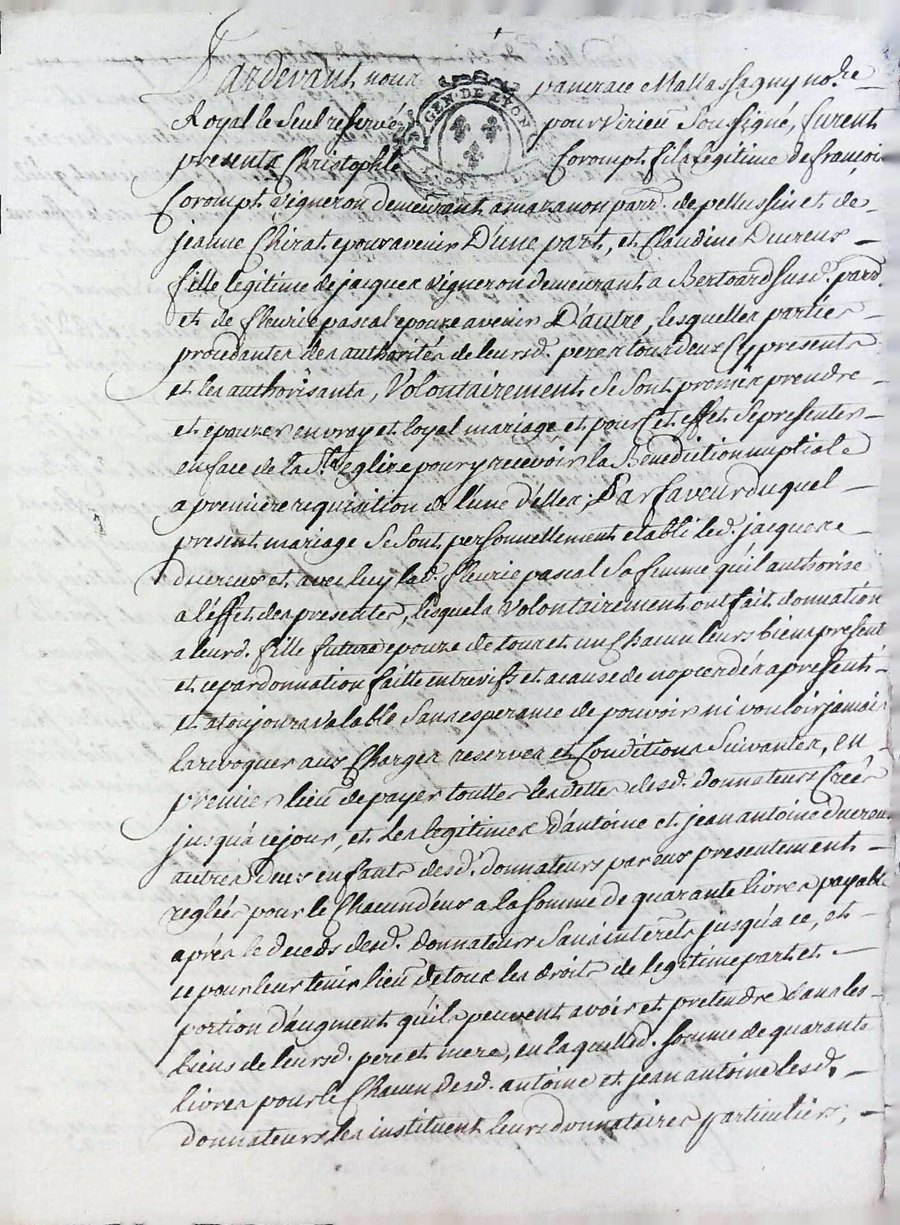 Pardevant nous pancrace Mallassagny no.re
Royal le seul reservé pour Virieu Soussigné, furent
presents Christophle Corompt fils legitime de françois
Corompt vigneron demeurant a mazanon parr. de pellussin et de
jeanne Chirat epoux avenir D'une part, et Claudine Ducreux
fille legitime de jacques vigneron demeurant a Bertoard susd. parr.
et de fleurie pascal epouze avenir D'autre, lesquelles parties
procedantes des authorités de leursd. peres tous deux Cy presents
et les authorisants, Volontairement se sont promis prendre
et epouzer en vray et loyal mariage et pour Cet effet se presenter
en face de la S.te eglize pour y recevoir la Benediction nuptiale
a premiere requisition de l'une d'elles, Par faveur duquel
present mariage se sont personnellement etabli led. jacques
ducreux et avec luy lad. fleurie pascal sa femme qu'il authorise
a l'effet des presentes, lesquels volontairement ont fait donnation
a leurd. fille future epouze de tous et un Chacun leurs biens present
et ce par donnation faitte entrevifs et a cause de nopces des a present
et a toujours valable sans esperance de pouvoir ni vouloir jamais
la revoquer aux Charges reserves et Conditions Suivantes, en
premier lieu de payer touttes les dettes desd. donnateurs Creés
jusqu'a ce jour, et les legitimes d'antoine et jean antoine ducreux
autres deux enfants desd. donnateurs par eux presentement
reglés pour le Chacun d'eux a la somme de quarante livres payable
après le deceds desd. donnateurs sans interets jusqu'a ce, et
ce pour leur tenir lieu de tous les droits de legitime part et
portion d'augment qu'ils peuvent avoir et pretendre dans les
biens de leursd. pere et mere, en laquelle d. somme de quarante
livres pour le Chacun desd. antoine et jean antoine lesd.
donnateurs les instituent leurs donnataires particuliers,
GEN. DE LYON